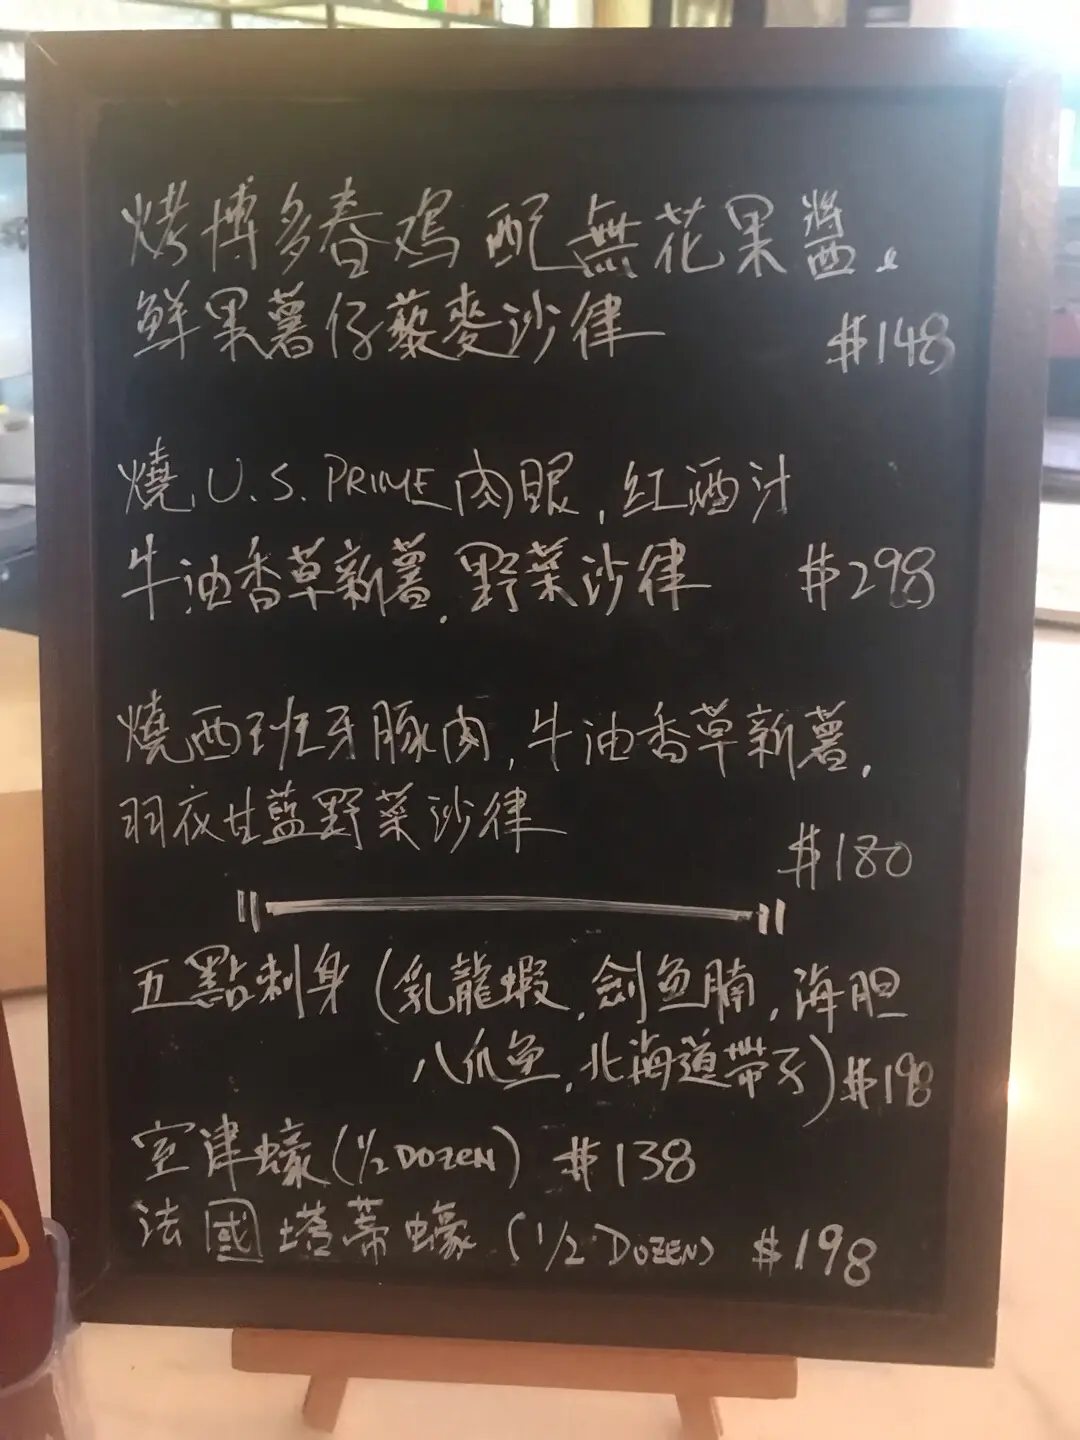 烤博多春鸡配無花果醬、
鮮果薯仔藜麥沙律 $148
燒U.S. PRIME肉眼,紅酒汁
牛油香草新薯,野菜沙律 $298
燒西班牙豚肉,牛油香草新薯,
羽衣甘藍野菜沙律 $180
五點刺身(乳龍蝦,劍魚腩,海胆
八爪魚,北海道帶子)$198
室津蠔(1/2 DOZEN) $138
法國塔蒂蠔(1/2 DOZEN) $198